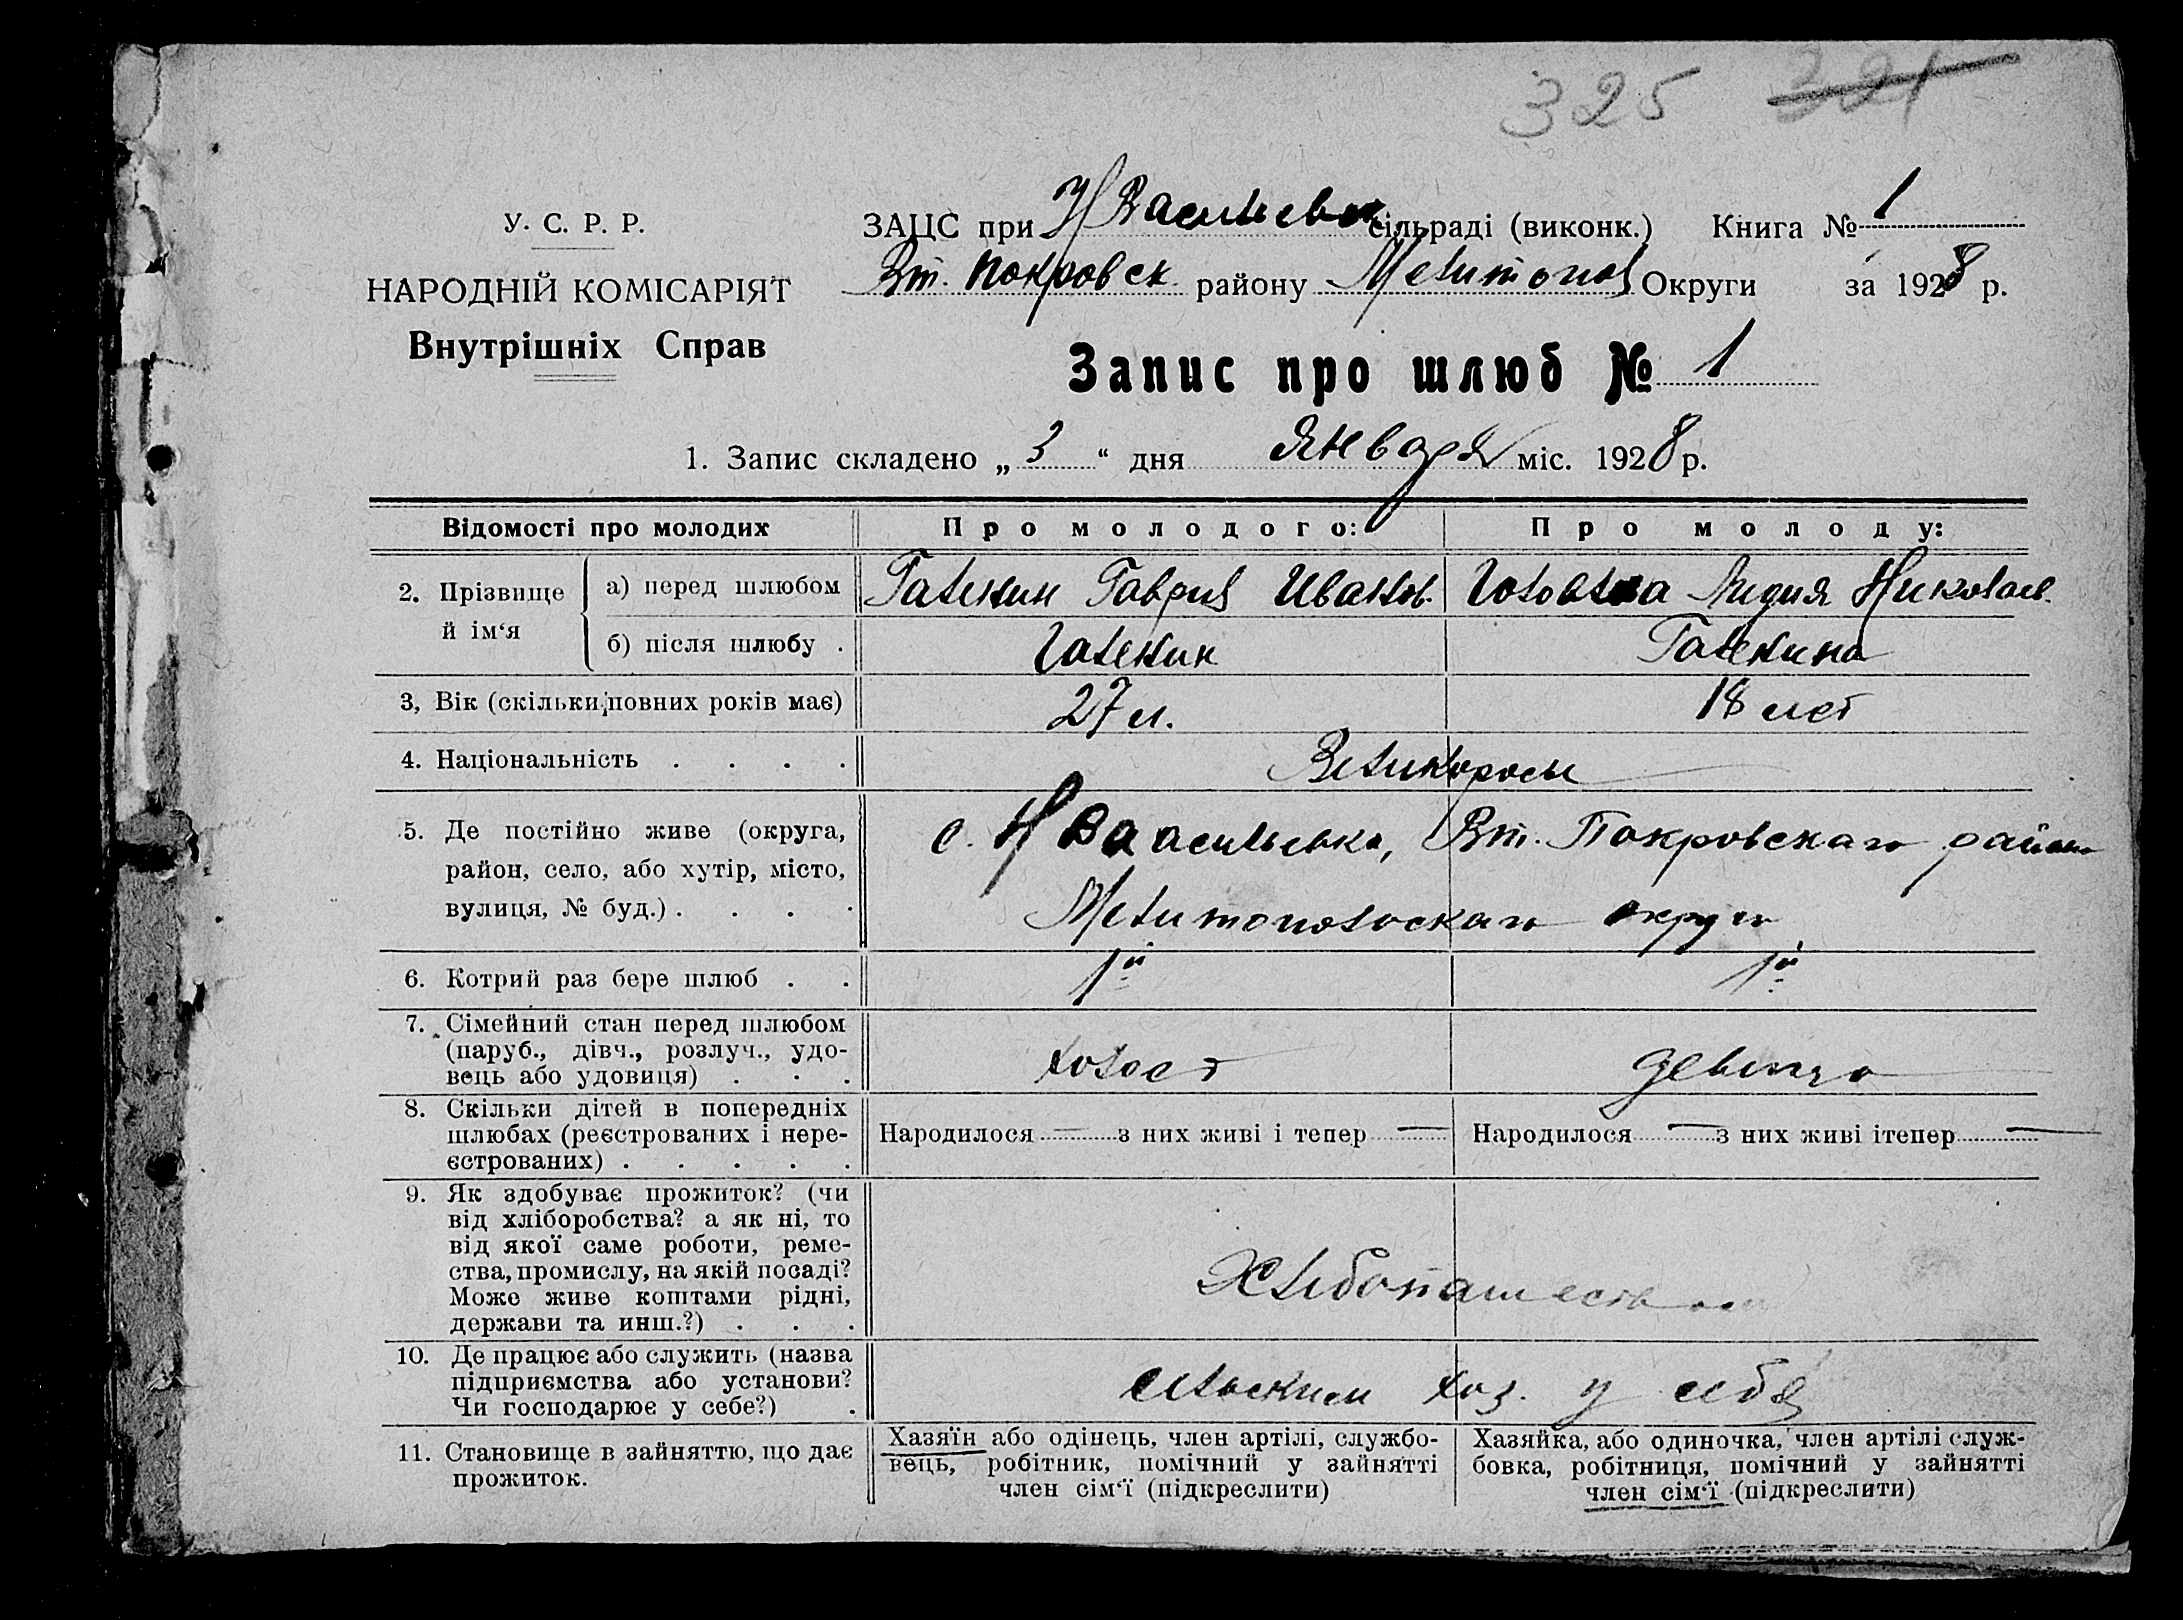 325 321
У. С. Р. Р.
НАРОДНІЙ КОМІСАРІЯТ
Внутрішніх Справ
ЗАЦС при Н Васильев сільраді (виконк.) Книга № 1
Вт. Покровск району Мелитопол Округи за 1928 р.
Запис про шлюб № 1
1. Запис складено „ 3 “ дня Января міс. 1928 р.
Відомості про молодих Про молодого: Про молоду:
2. Прізвище й ім‘я
а) перед шлюбом Галекин Гаврил Иванов. Лидия Николаев.
б) після шлюбу . Галекин Галекина
3, Вік (скільки повних років має) 27 л. 18 лет
4. Національність . . . . Великоросы
5. Де постійно живе (округа, район, село, або хутір, місто, вулиця, № буд.) . . . .
с. Н Васильевка, Вт. Покровскаго района
Мелитопольскаго округа
6. Котрий раз бере шлюб . . 1й 1й
7. Сімейний стан перед шлюбом
(паруб., дівч., розлуч., удо-
вець або удовиця) . . .
холост девица
8. Скільки дітей в попередніх
шлюбах (реєстрованих і нере-
єстрованих) . . . . .
Народилося — з них живі і тепер — Народилося — з них живі ітепер —
9. Як здобуває прожиток? (чи
від хліборобства? а як ні, то
від якої саме роботи, реме-
ства, промислу, на якій посаді?
Може живе коштами рідні,
держави та инш.?) . . .
Хлибопашеством
10. Де працює або служить (назва
підприємства або установи?
Чи господарює у себе?) .
хоз. у себя
11. Становище в зайняттю, що дає
прожиток.
Хазяїн або одінець, член артілі, службо-
вець, робітник, помічний у зайнятті
член сім‘ї (підкреслити)
Хазяйка, або одиночка, член артілі служ-
бовка, робітниця, помічний у зайнятті
член сім‘ї (підкреслити)